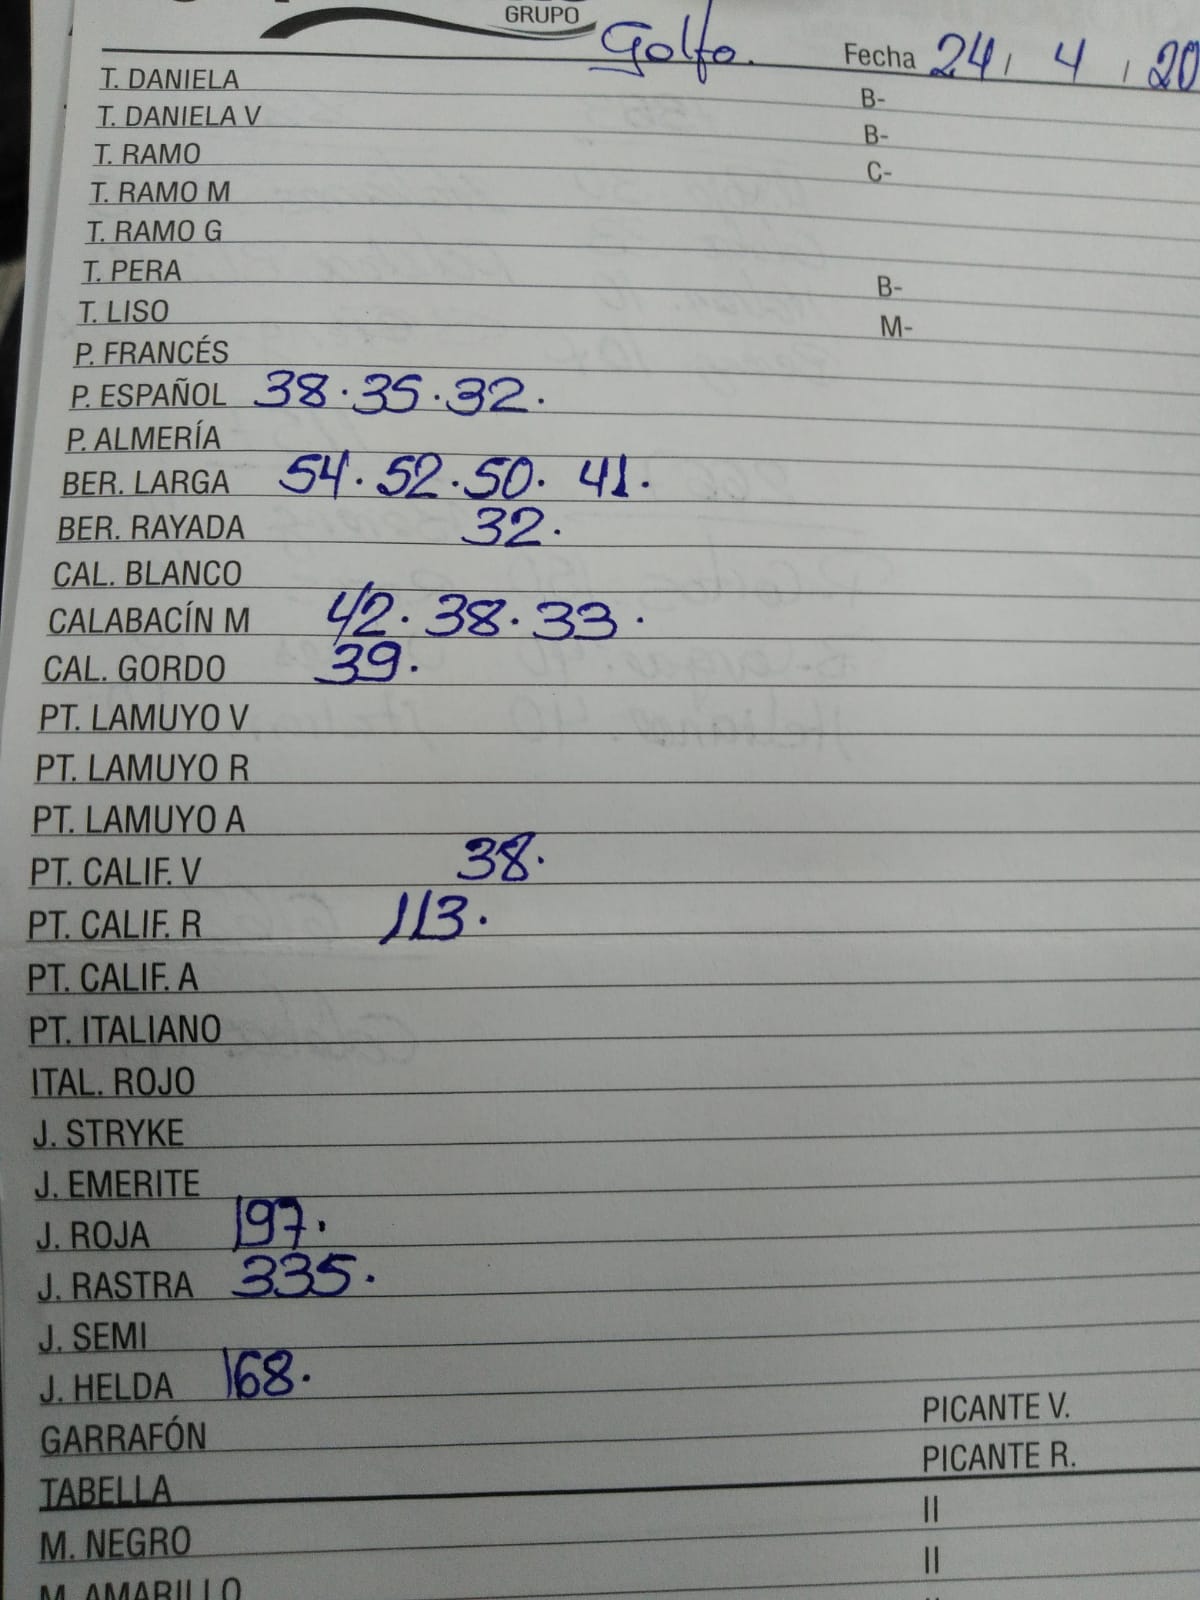 GRUPO
Golfo. Fecha 24 / 4 / 20
T. DANIELA B-
T. DANIELA V B-
T. RAMO C-
T. RAMO M
T. RAMO G
T. PERA B-
T. LISO M-
P. FRANCÉS
P. ESPAÑOL 38. 35. 32.
P. ALMERÍA
BER. LARGA 54. 52. 50. 41.
BER. RAYADA 32.
CAL. BLANCO
CALABACÍN M 42. 38. 33.
CAL. GORDO 39.
PT. LAMUYO V
PT. LAMUYO R
PT. LAMUYO A
PT. CALIF. V 38.
PT. CALIF. R 113.
PT. CALIF. A
PT. ITALIANO
ITAL. ROJO
J. STRYKE
J. EMERITE
J. ROJA 197.
J. RASTRA 335.
J. SEMI
J. HELDA 168.
GARRAFÓN PICANTE V.
TABELLA PICANTE R.
M. NEGRO II
M. AMARILLO II